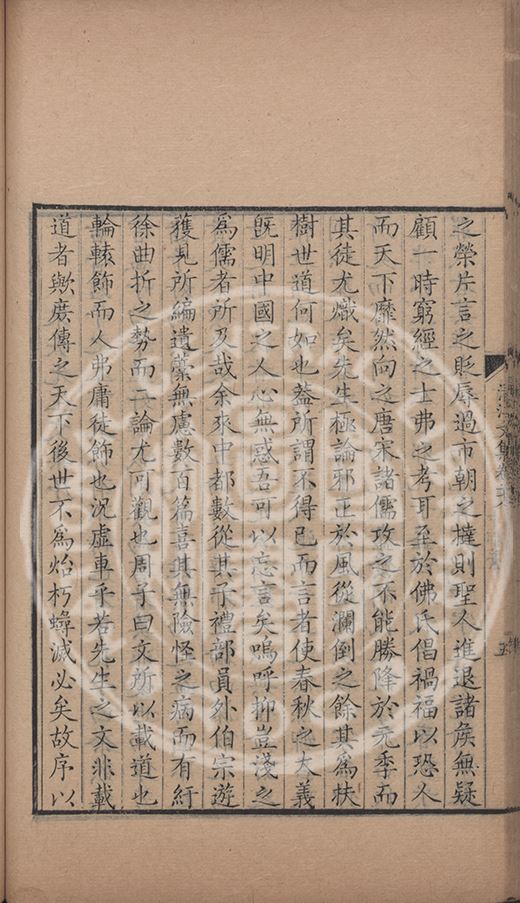 之榮片言之貶辱過市朝之撻則聖人進退諸矦無疑
顧一時窮經之士弗之考耳至於佛氏倡禍福以恐人
而天下靡然向之唐宋諸儒攻之不能勝降於元季而
其徒尤熾矣先生極論邪正於風從瀾倒之餘其為扶
樹世道何如也葢所謂不得已而言者使春秋之大義
旣明中國之人心無惑吾可以忘言矣嗚呼抑豈淺之
為儒者所及哉余來中都數從其子禮部員外伯宗遊
獲見所編遺藁無慮數百篇喜其無險怪之病而有紆
徐曲折之勢而二論尤可觀也周子曰文所以載道也
輪轅飾而人弗庸徒飾也況虛車乎若先生之文非載
道者歟庶傳之天下後世不為炲朽蟫滅必矣故序以